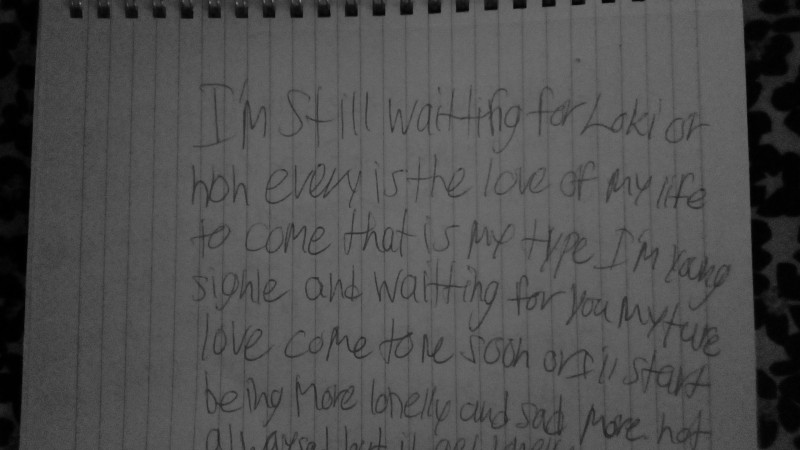 I'm Still waitting for Loki or
hoh every is the love of my life
to come that is my type I'm young
sighle and waitting for you my ture
love come to me soon or I'll start
being more lonelly and sad more not
but it